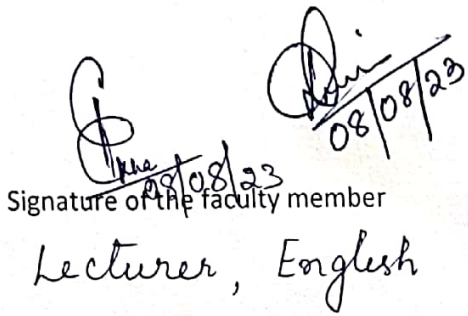 08/08/23
08/08/23
Signature of the faculty member
Lecturer, English